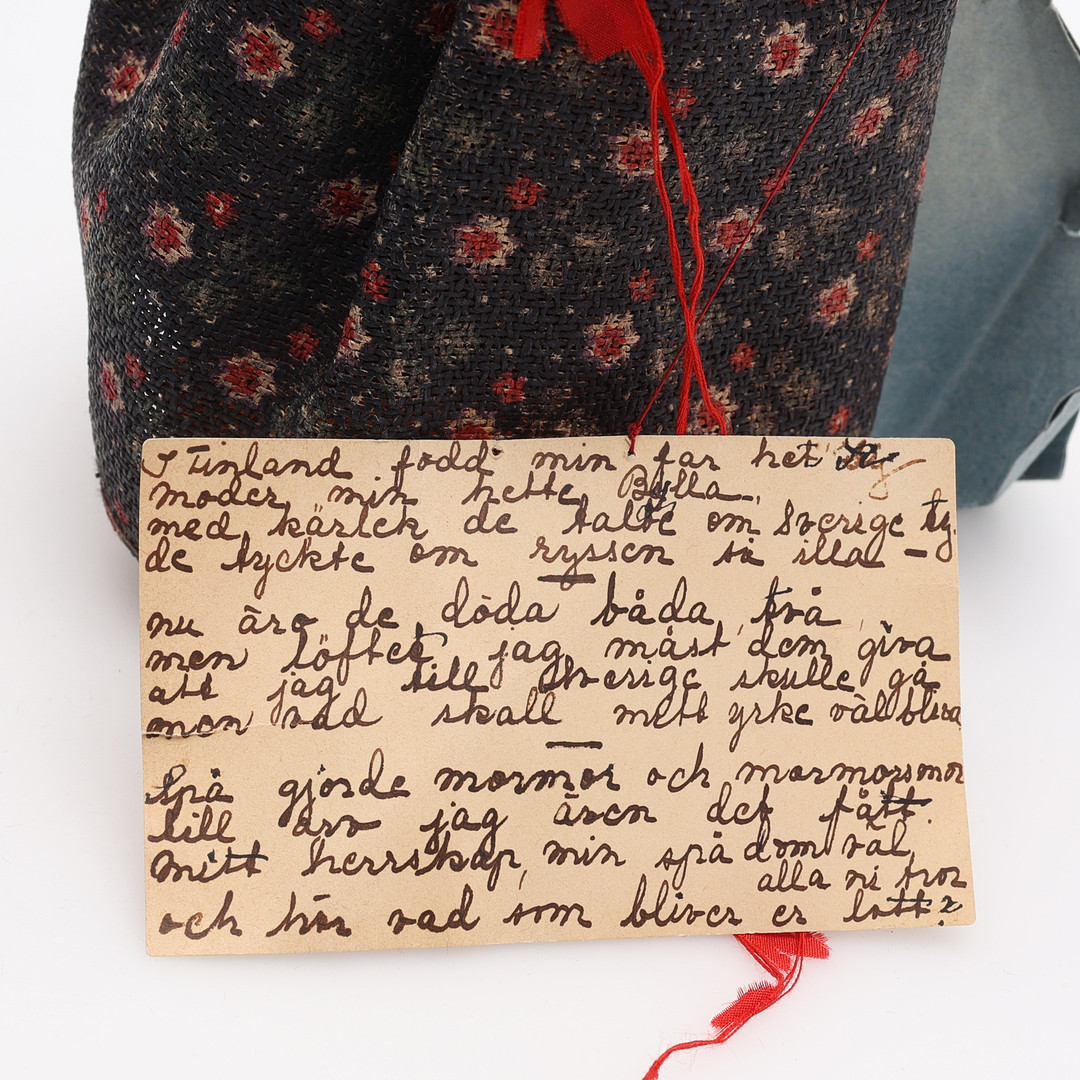 I Finland född min far het
moder min hette Bylla,
med kärlek de talte om Sverige ty
de tyckte om ryssen så illa —
nu äro de döda båda två
men löftet jag måst dem giva
att jag till Sverige skulle gå
men vad skall mitt yrke väl bliva
Spå gjorde mormor och mormorsmor
till arv jag även det fått.
mitt herrskap, min spådom väl
alla ni tror
och hör vad som bliver er lott?